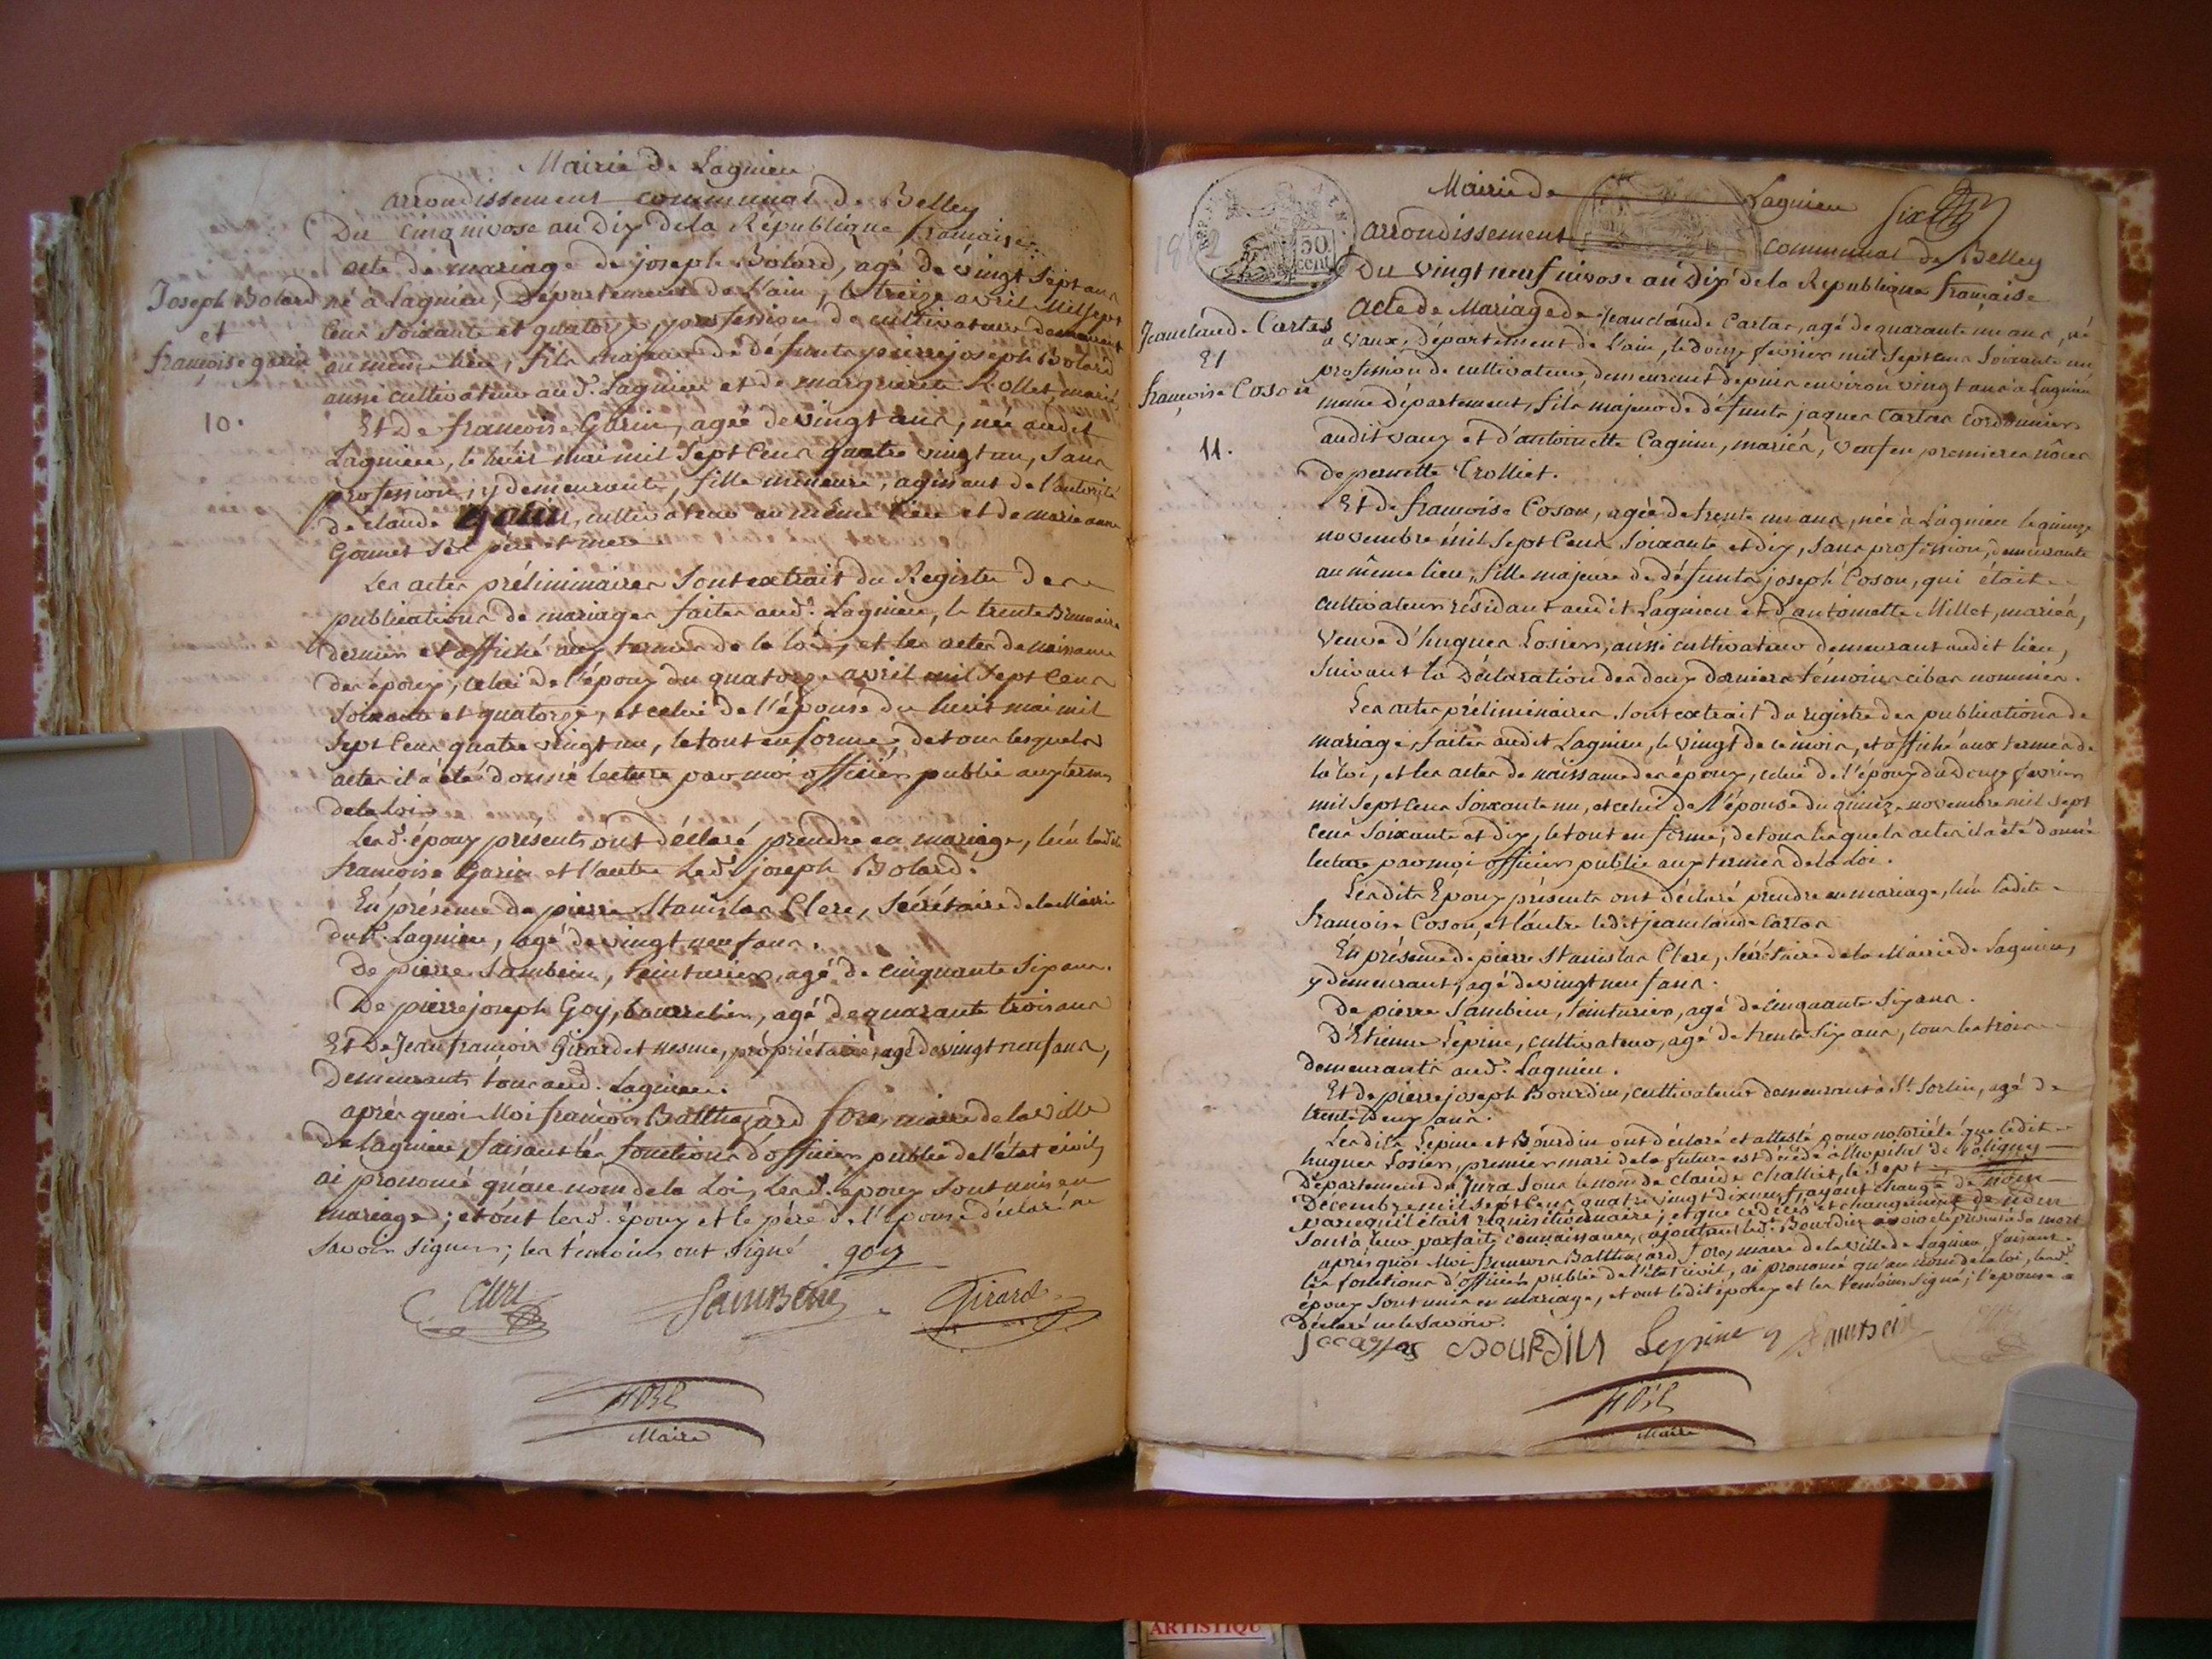 Mairie de Lagnieu
arrondissement communal de Belley
Du cinq nivose an Dix de la République française
acte de mariage de joseph Bolard, agé de vingt sept ans
Joseph Bolard
et
françoise garin
10.
né à Lagnieu, Département de l'ain, le treize avril Mil sept
Cens soixante et quatorze, profession de cultivateur demeurant
au meme lieu, fils majeur de défunts pierre joseph Bolard
aussi cultivateur aud. Lagnieu et de marguerite Rollet, mariés
Et de francoise Garin, agée de vingt ans, née audit
Lagnieu, le huit mai mil Sept Cens quatre vingt un, sans
profession, y demeurante, fille mineure, agissant de l'autorité
de claude garin, cultivateur au même lieu et de marie anne
Gonnet ses père et mere
Les actes préliminaires Sont extrait du Registre des
publications de mariages faites aud. Lagnieu, le trente Brumaire
dernier et affiché aux termes de la loi, et les actes de naissance
des époux, celui de l'époux du quatorze avril mil Sept Cens
soixante et quatorze, et celui de l'épouse du huit mai mil
Sept Cens quatre vingt un, le tout en forme, de tous lesquels
actes il a été donné lecture par moi officier public aux termes
de la loi.
Lesd. époux présents ont déclaré prendre en mariage, l'un ladite
françoise Garin et l'autre led. joseph Bolard.
En présence de pierre Stanislas Clerc, Sécrétaire de la Mairie
dud. Lagnieu, agé de vingt neuf ans.
De pierre Sambein, teinturier, agé de cinquante six ans.
De pierre joseph Goy, bourrelier, agé de quarante trois ans
Et de Jean francois Girardet nesme, propriétaire, agé de vingt neuf ans,
Demeurants tous aud. Lagnieu.
après quoi Moi françois Balthazard fore, maire de la ville
de Lagnieu, faisant les fonctions d'officier public de l'état civil
ai prononcé qu'au nom de la Loi, Lesd. époux sont unis en
mariage; et ont lesd. époux et le père de l'épouse déclaré ne
savoir signer; les témoins ont signé goy
Clerc Sambein Girard
fore
Maire
50
cent
Mairie de Lagnieu six
arrondissement communal de Belley
Du vingt neuf nivose an Dix de la République française
Jean claude Cartas
Et
françoise Coson
11.
acte de Mariage de Jean claude Cartas, agé de quarante un ans, né
a Vaux, Département de l'ain, le douze février mil Sept Cens Soixante un
profession de cultivateur, demeurant depuis environ vingt ans à Lagnieu
meme Département, fils majeur de défunts jaques Cartas Cordonnier
audit vaux et d'antoinette Cagnin, mariés, veuf en premieres nôces
de pernette Trolliet.
Et de francoise Coson, agée de trente un ans, née à Lagnieu le quinze
novembre mil Sept Cens Soixante et dix, Sans profession, demeurante
au même lieu, fille majeure de défunts joseph Coson, qui était
cultivateur résidant audit Lagnieu et d'antoinette Millet, mariés,
Veuve d'hugues Losier, aussi cultivateur demeurant audit lieu,
Suivant la Déclaration des deux derniers témoins cibas nommés.
Les actes préliminaires Sont extrait du registre des publications de
mariage, faites audit Lagnieu, le vingt de ce mois, et affiché aux termes de
la loi, et les actes de naissance des époux, celui de l'époux du douze février
mil Sept Cens Soixante un, et celui de l'épouse du quinze novembre mil sept
Cens Soixante et dix, le tout en forme; de tous lesquels actes il a été donné
lecture par moi officier public aux termes de la Loi.
Lesdits Epoux présents ont déclaré prendre en mariage, l'un ladite
françoise Coson, et l'autre ledit jean claude Cartas
En présence de pierre Stanislas Clerc, Sécrétaire de la Mairie de Lagnieu,
y demeurant, agé de vingt neuf ans.
De pierre Sambein, teinturier, agé de cinquante Six ans.
D'Etienne Lépine, cultivateur, agé de trente Six ans, tous les trois
demeurants aud. Lagnieu.
Et de pierre joseph Bourdin, cultivateur demeurant à St. Sorlin, agé de
trente Deux ans.
Lesdits Lépine et Bourdin ont déclaré et attesté pour notoriété que ledit
hugues Losier, premier mari de la future est décédé à l'hopital de Poligny
Département du Jura Sous le nom de claude challiet, le Sept
Décembre mil sept Cens quatre vingt dix neuf, ayant changé de nom
parcequ'il était réquisitionnaire; et que ce décès et changement de nom
sont à leur parfaite connaissance, ajoutant led. Bourdin avoir été présent à Sa mort
après quoi Moi francois Balthazard fore, maire de la ville de Lagnieu faisant
les fonctions d'officier public de l'état civil, ai prononcé qu'au nom de la loi, lesd.
époux sont unis en mariage, et ont ledit époux et les témoins Signé; l'épouse a
Déclaré ne le Savoir.
J C cartas BOURDIN Lepine Sambein
fore
Maire
ARTISTIQU